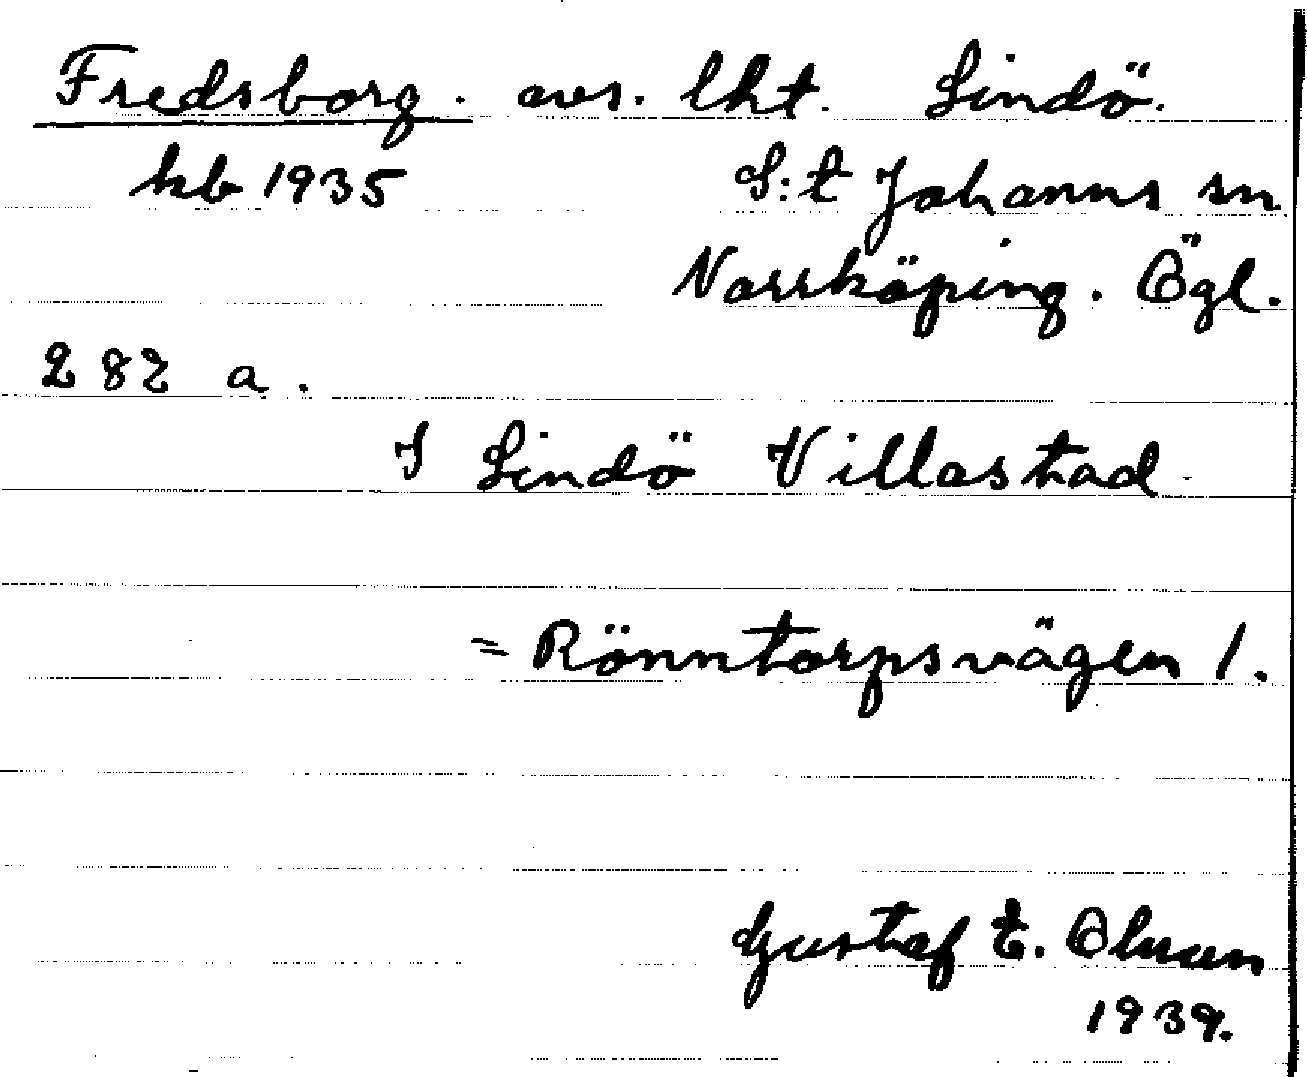 Fredsborg. avs. lht. Lindö.
kb 1935 S:t Johanns sn
Norrköping. Ögl.
282 a.
I Lindö Villastad
= Rönntorpsvägen 1.
Gustaf E. Olsson
1939.